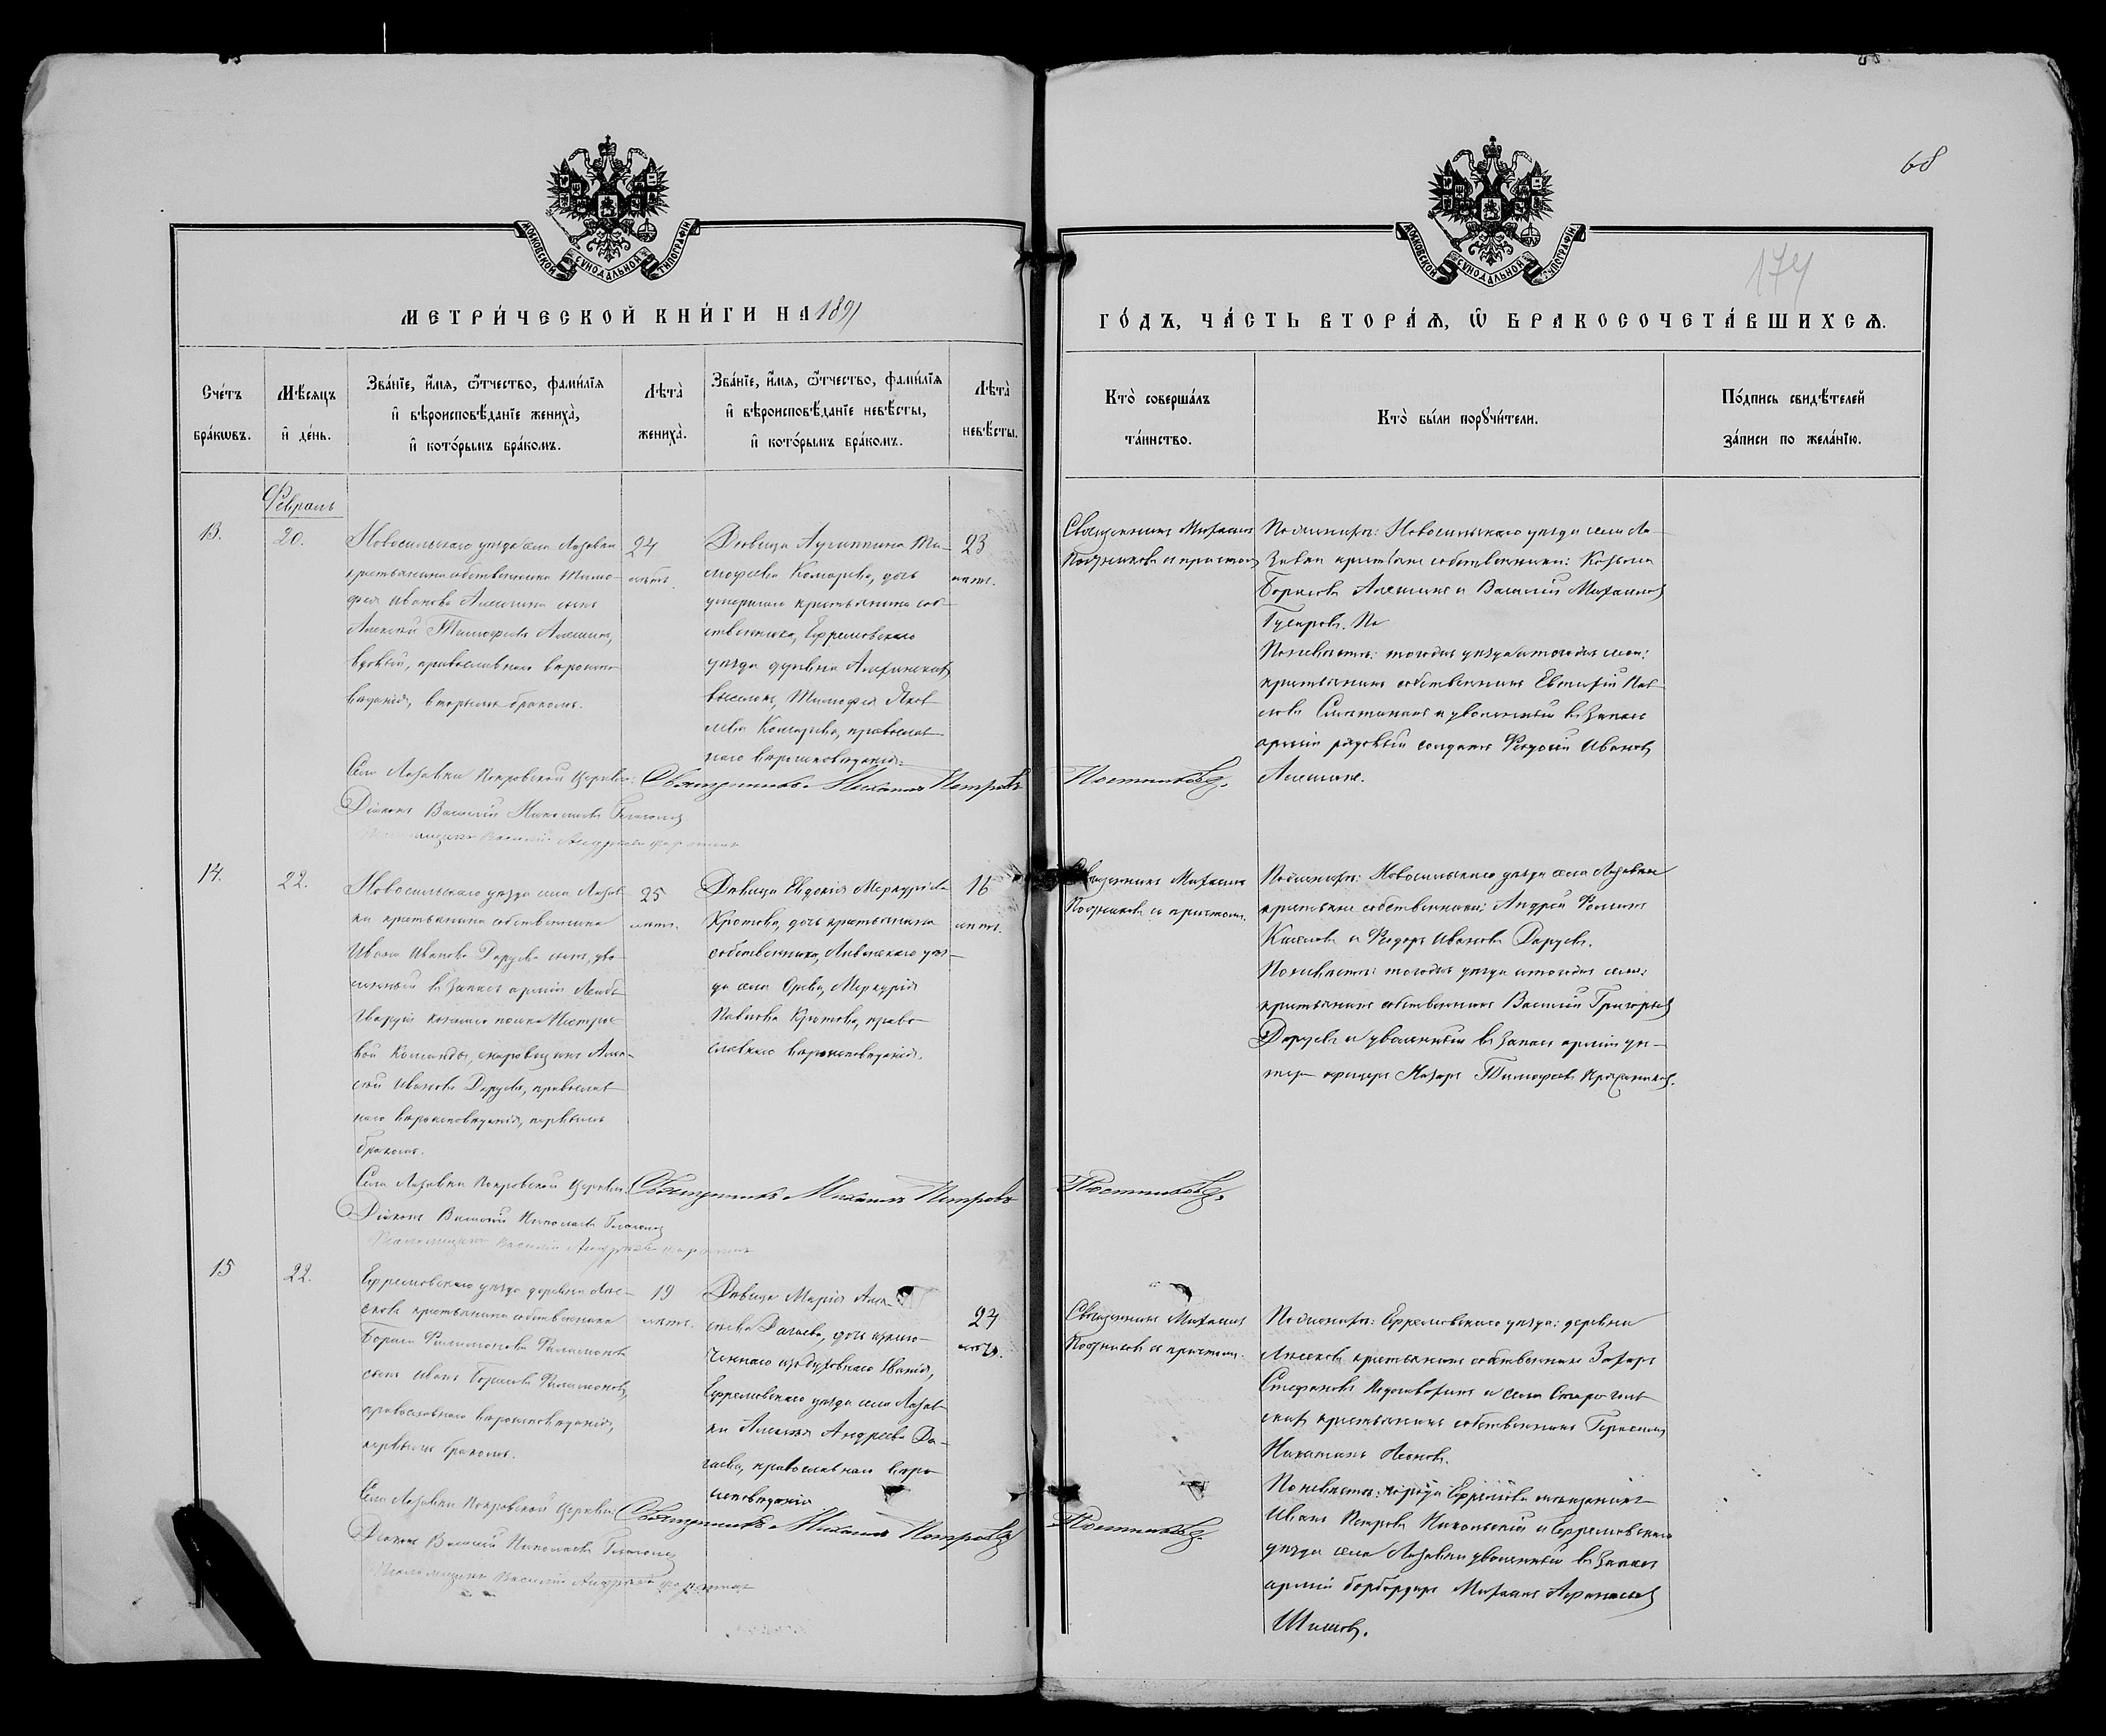 68
174
МОСКОВСКОЙ СѴНОДАЛЬНОЙ ТИПОГРАФІИ
МОСКОВСКОЙ СѴНОДАЛЬНОЙ ТИПОГРАФІИ
МЕТРИ́ЧЕСКОЙ КНИ́ГИ НА 1891
ГО́ДЪ, ЧА́СТЬ ВТОРА́Ѧ, Ѡ҃ БРАКОСОЧЕТА́ВШИХСѦ.
Сче́тъ бра́кѡвъ.
Мѣ́сяцъ и҆ де́нь.
Зва́нїе, и҆́мѧ, ѻ҆́тчество, фами́лїѧ
и҆ вѣроисповѣ́данїе жениха̀,
и҆ кото́рымъ бра́комъ.
Лѣта̀ жениха̀.
Зва́нїе, и҆́мѧ, ѻ҆́тчество, фами́лїѧ
и҆ вѣроисповѣ́данїе невѣ́сты,
и҆ кото́рымъ бра́комъ.
Лѣта̀ невѣ́сты.
Кто̀ соверша́лъ та́инство.
Кто̀ бы́ли порꙋчи́тели.
По́дпись свидѣ́телей
за́писи по жела́нїю.
Февраль
13.
20.
Новосильскаго уѣзда села Лазавки
крестьянина собственника Тимо-
фея Иванова Алешина сынъ
Алексѣй Тимофеевъ Алешинъ,
вдовый, православнаго вѣроиспо-
вѣданія, вторымъ бракомъ.
24
лѣтъ.
Дѣвица Агриппина Ти-
мофеева Комарева, дочь
умершаго крестьянина соб-
ственника, Ефремовскаго
уѣзда деревни
выселокъ, Тимофея Яков-
лева Комарева, православ-
наго вѣроисповѣданія.
23
лѣтъ.
Священникъ Михаилъ
Постниковъ съ причтомъ
По женихѣ: Новосильскаго уѣзда села Ла-
завки крестьяне собственники: Козьма
Борисовъ Алешинъ и Василій Михайловъ
Гусаровъ. По
По невѣстѣ: тогоже уѣзда и тогоже села:
крестьянинъ собственникъ Евстафій Пав-
ловъ и уволенный въ запасъ
арміи рядовый солдатъ Федосій Ивановъ
Алешинъ.
Села Лазавки Покровской церкви: Священникъ Михаилъ Петровъ Постниковъ.
Діаконъ Василій Николаевъ Глаголевъ
Псаломщикъ Василій Андреевъ
14.
22.
Новосильскаго уѣзда села Лазав-
ки крестьянина собственника
Ивана Иванова Даруева сынъ, уво-
ленный въ запасъ арміи Лейбъ
Гвардіи полка Нестрое-
вой Команды, Алек-
сѣй Ивановъ Даруевъ, православ-
наго вѣроисповѣданія, первымъ
бракомъ.
25
лѣтъ.
Дѣвица Евдокія Меркуріева
Кротова, дочь крестьянина
собственника, Ливенскаго уѣз-
да села Орева, Меркурія
Павлова Кротова, право-
славнаго вѣроисповѣданія.
16
лѣтъ.
Священникъ Михаилъ
Постниковъ съ причтомъ.
По женихѣ: Новосильскаго уѣзда села Лазавки
крестьяне собственники: Андрей Фоминъ
Киселевъ и Федоръ Ивановъ Даруевъ.
По невѣстѣ: тогоже уѣзда и тогоже села:
крестьянинъ собственникъ Василій Григорьевъ
Даруевъ и уволенный въ запасъ арміи ун-
теръ офицеръ Назаръ Тимофеевъ
Села Лазавки Покровской церкви: Священникъ Михаилъ Петровъ Постниковъ.
Діаконъ Василій Николаевъ Глаголевъ
Псаломщикъ Василій Андреевъ
15
22.
Ефремовскаго уѣзда деревни Лысе-
ковъ крестьянина собственника
Бориса Филимонова Филимонова
сынъ Иванъ Борисовъ Филимоновъ,
православнаго вѣроисповѣданія,
первымъ бракомъ.
19
лѣтъ.
Дѣвица Марія Алек-
сѣева Дагаева, дочь исклю-
ченнаго изъ духовнаго званія,
Ефремовскаго уѣзда села Лазав-
ки Алексѣя Андреева Да-
гаева, православнаго вѣро-
исповѣданія.
24
лѣтъ.
Священникъ Михаилъ
Постниковъ съ причтомъ.
По женихѣ: Ефремовскаго уѣзда: деревни
Лысековъ крестьянинъ собственникъ Захаръ
Стефановъ и села
крестьянинъ собственникъ Герасимъ
Никитинъ Леоновъ.
По невѣстѣ: города Ефремова мѣщанинъ
Иванъ Петровъ Никольскій и Ефремовскаго
уѣзда села Лазавки уволенный въ запасъ
арміи бомбардиръ Михаилъ Афанасьевъ
Шиловъ.
Села Лазавки Покровской церкви: Священникъ Михаилъ Петровъ Постниковъ.
Діаконъ Василій Николаевъ Глаголевъ
Псаломщикъ Василій Андреевъ